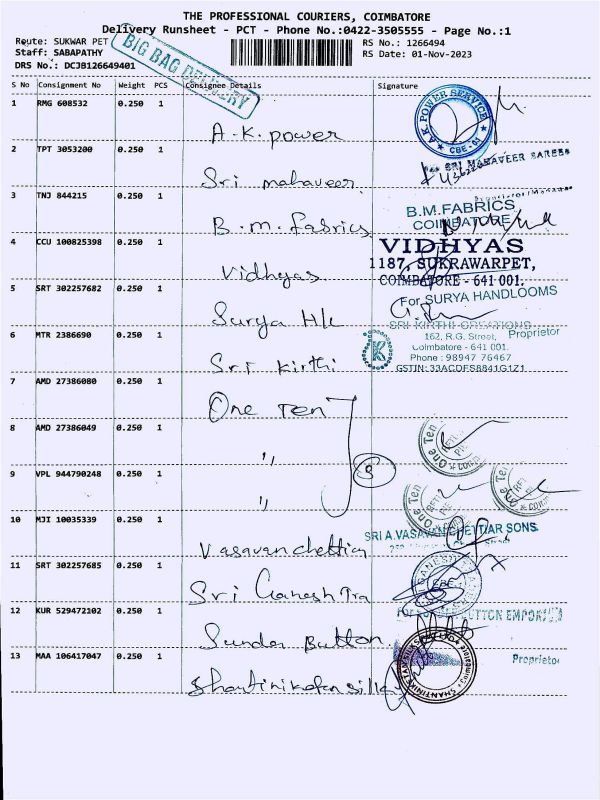 THE PROFESSIONAL COURIERS, COIMBATORE
Delivery Runsheet - PCT - Phone No.:0422-3505555 - Page No.:1
Route: SUKWAR PET
RS No.: 1266494
Staff: SABAPATHY
RS Date: 01-Nov-2023
DRS No.: DCJB126649401
BIG BAG DELIVERY
S No Consignment No Weight PCS Consignee Details Signature
1 RMG 608532 0.250 1
A.K.power
A.K.POWER SERVICE
CBE-01
2 TPT 3053200 0.250 1
Sri mahaveer
SRI MAHAVEER SAREES
3 TNJ 844215 0.250 1
B.m.fabrics
B.M.FABRICS
COIMBATORE
4 CCU 100825398 0.250 1
Vidhyas
VIDHYAS
1187, SUKRAWARPET,
COIMBATORE - 641 001.
5 SRT 302257682 0.250 1
Surya H/L
For SURYA HANDLOOMS
Proprietor
6 MTR 2386690 0.250 1
Sri kirthi
SRI KIRTHI CREATIONS
162, R.G. Street,
Coimbatore - 641 001.
Phone : 98947 76467
GSTIN: 33ACDFS8841G1Z1
7 AMD 27386080 0.250 1
One Ten
8 AMD 27386049 0.250 1
"
One Ten
9 VPL 944790248 0.250 1
"
3
One Ten
One Ten
10 MJI 10035339 0.250 1
Vasavan chettiar
SRI A.VASAVAN CHETTIAR SONS
11 SRT 302257685 0.250 1
Sri Ganesh Tra
GANESH
CBE
12 KUR 529472102 0.250 1
Sunder Button
BUTTON EMPORIUM
13 MAA 106417047 0.250 1
Shantiniketan silks
Proprietor